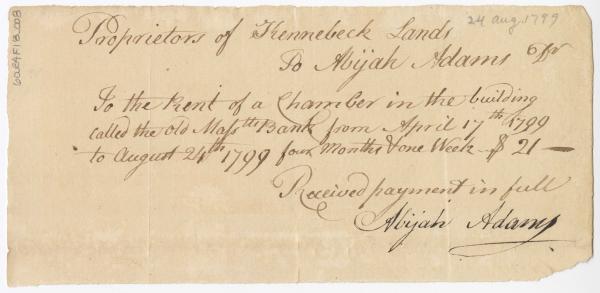 24 Aug. 1799
Proprietors of Kennebeck Lands
To Abijah Adams Dr
To the Rent of a Chamber in the building
called the old Masstts Bank from April 17th 1799
to August 24th 1799 four Months & one Week - $ 21 -
Received payment in full
Abijah Adams